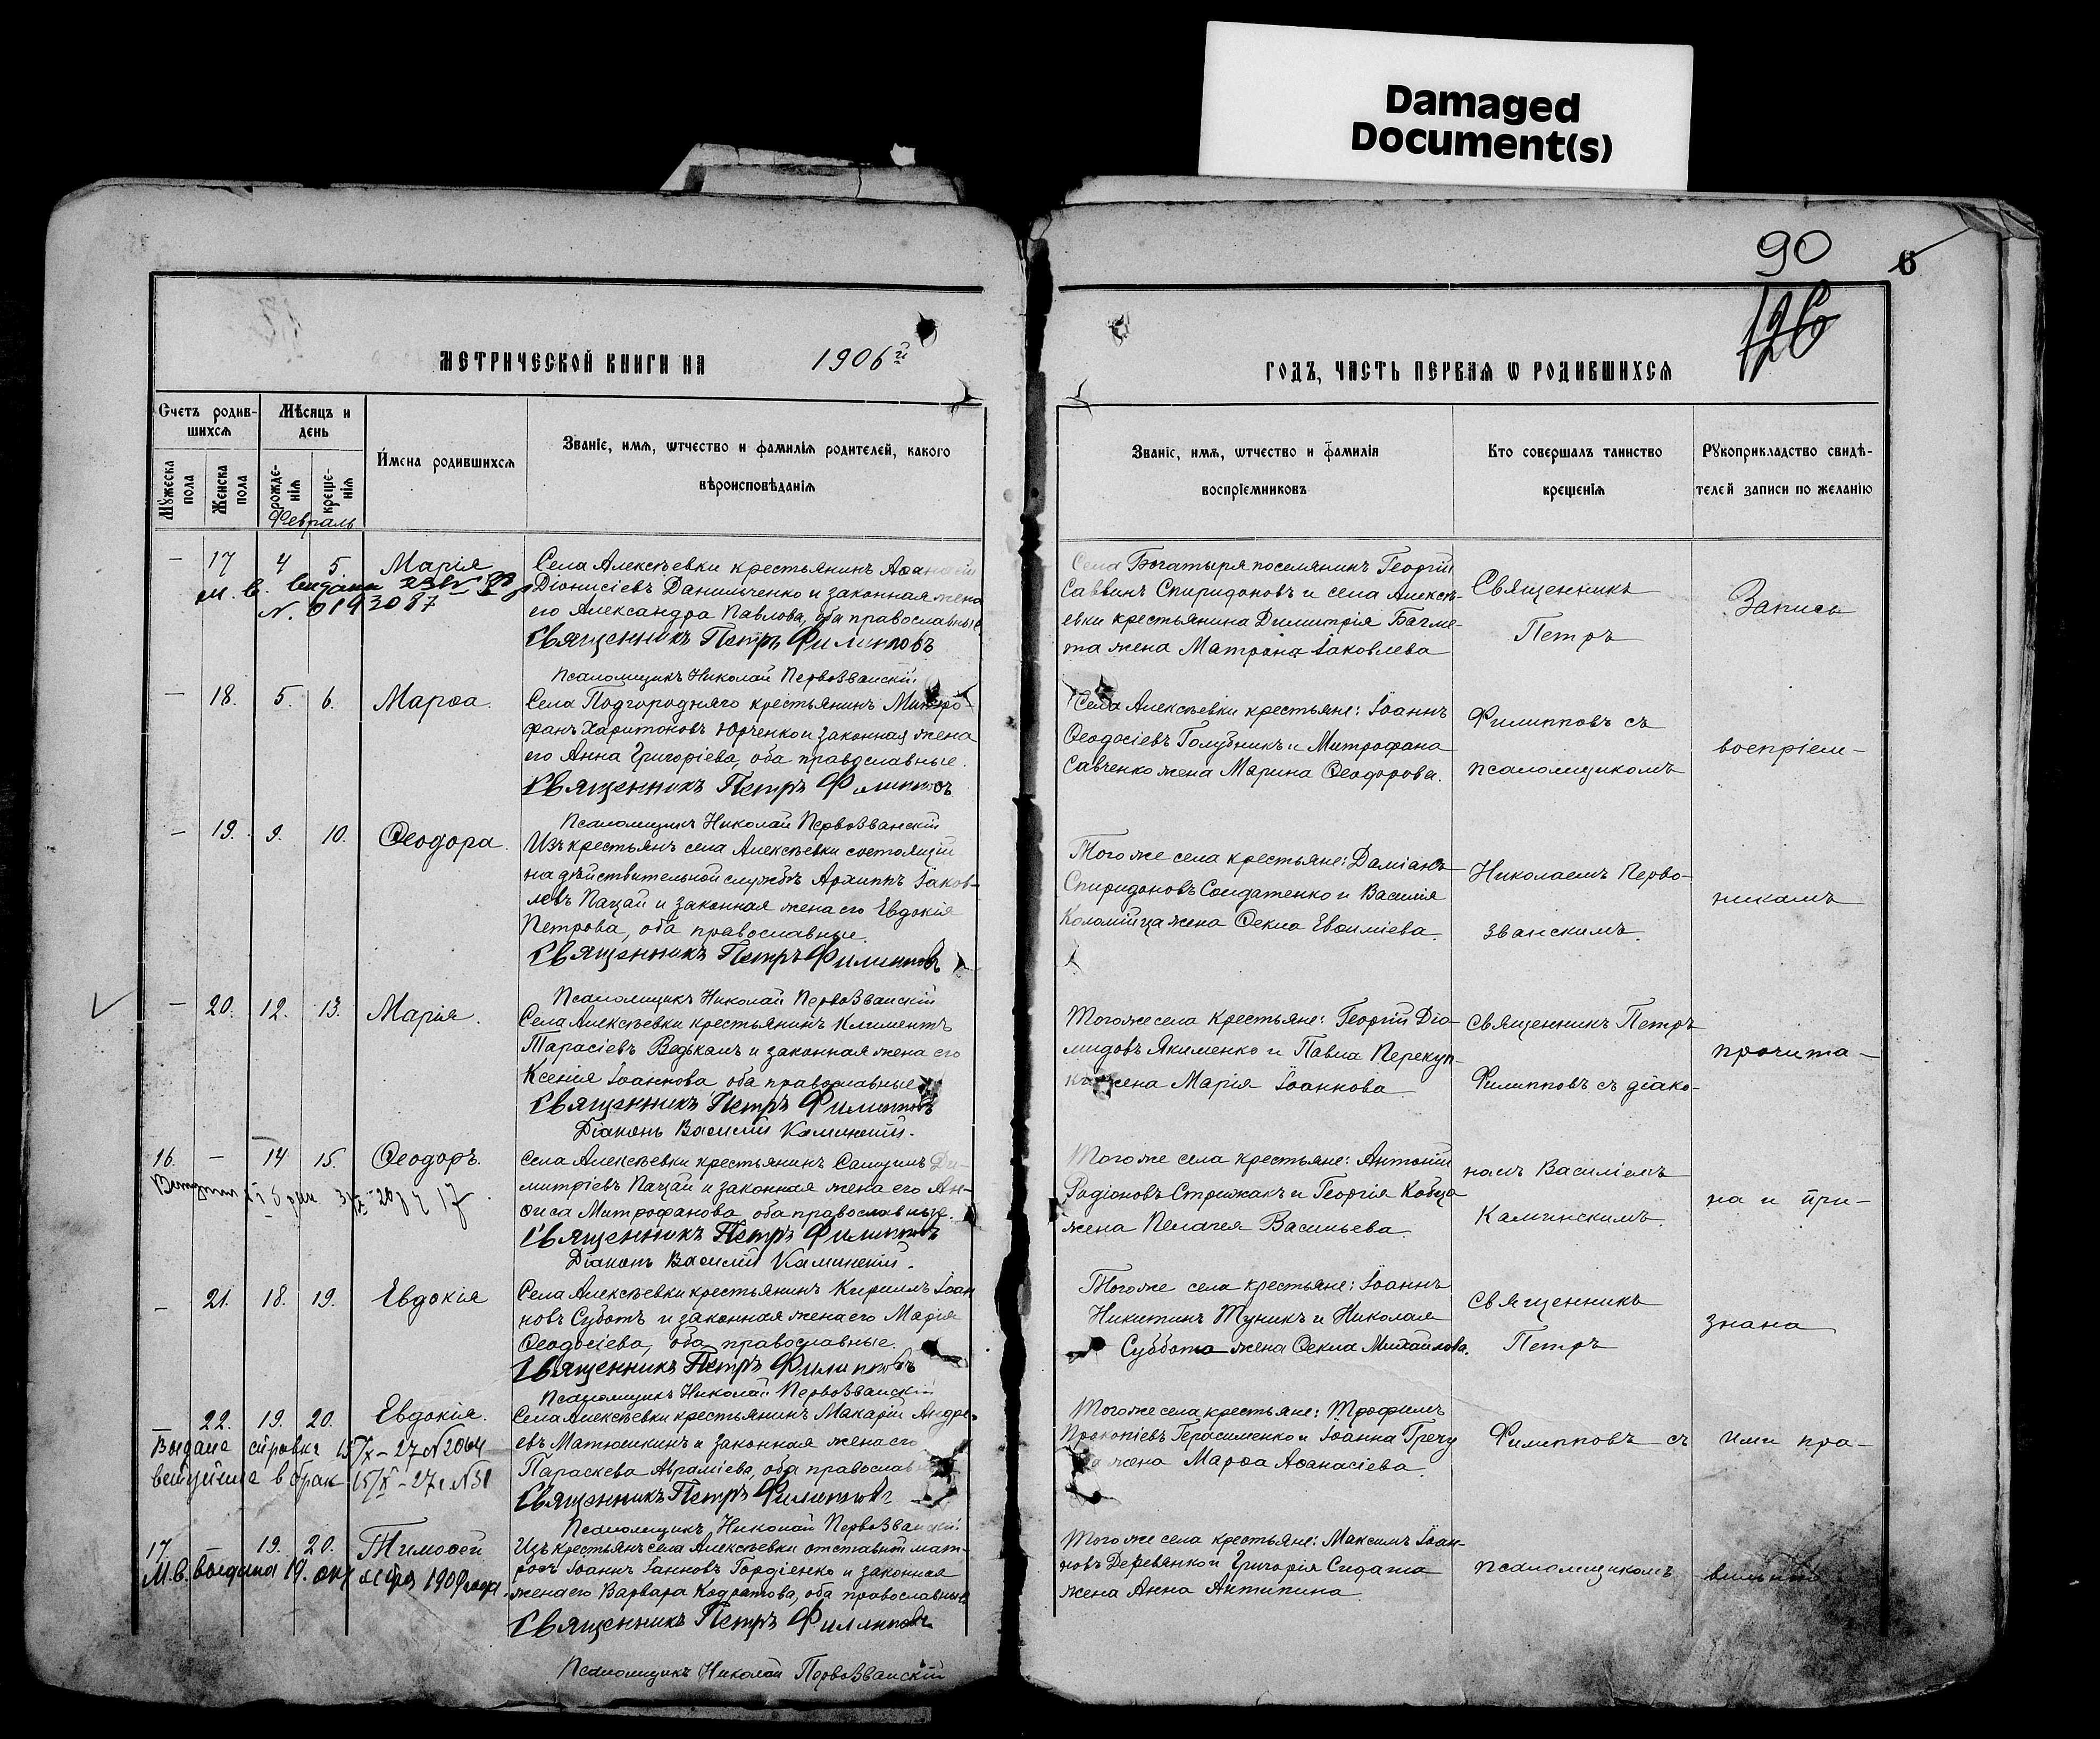 Damaged
Document(s)
90
6
126
МЕТРИЧЕСКОЙ КНИГИ НА 1906й
Счетъ родив-
шихся
Мѣсяцъ и
день
Имена родившихся
Званіе, имя, ѡтчество и фамилія родителей, какого
вѣроисповѣданія
Мужеска
пола
Женска
пола
рожде-
нія
креще-
нія
Февраль
— 17 4 5 Марія
М. в. выдана
N. 0193087
Села Алексѣевки крестьянинъ Аѳанасій
Діонисіевъ Данильченко и законная жена
его Александра Павлова, оба православные
Священникъ Петръ Филипповъ
Псаломщикъ Николай Первозванскій
— 18. 5. 6. Марѳа.
Села Подгородняго крестьянинъ Митро-
фанъ Харитоновъ Юрченко и законная жена
его Анна Григоріева, оба православные.
Священникъ Петръ Филипповъ
Псаломщикъ Николай Первозванскій
— 19. 9. 10. Ѳеодора.
Изъ крестьянъ села Алексѣевки состоящій
на дѣйствительной службѣ Архиппъ Іаков-
левъ Пацай и законная жена его Евдокія
Петрова, оба православные.
Священникъ Петръ Филипповъ
Псаломщикъ Николай Первозванскій
— 20. 12. 13. Марія.
Села Алексѣевки крестьянинъ Климентъ
Тарасіевъ Ведькалъ и законная жена его
Ксенія Іоаннова оба православные
Священникъ Петръ Филипповъ
Діаконъ Василій Каминскій.
16. — 14 15. Ѳеодоръ.
Села Алексѣевки крестьянинъ Самуилъ Ди-
митріевъ Пацай и законная жена его Ан-
ѳиса Митрофанова оба православные.
Священникъ Петръ Филипповъ
Діаконъ Василій Каминскій.
— 21. 18. 19. Евдокія
Села Алексѣевки крестьянинъ Кириллъ Іоан
новъ Суботъ и законная жена его Марія
Ѳеодосіева, оба православные.
Священникъ Петръ Филипповъ
Псаломщикъ Николай Первозванскій
— 22. 19. 20. Евдокія.
Выдана справка 15/X – 27 N 2064
в брак 15/X – 27 г N 51
Села Алексѣевки крестьянинъ Макарій Андре-
евъ Матюшкинъ и законная жена его
Параскева Авраміева, оба православ
Священникъ Петръ Филипповъ
Псаломщикъ Николай Первозванскій
17 — 19. 20. Тимоѳей
М.в. выдана 19. 1909 года.
Изъ крестьянъ села Алексѣевки отставной мат-
росъ Іоаннъ Іоанновъ Гордіенко и законная
жена его Варвара Кодратова, оба православные
Священникъ Петръ Филипповъ
Псаломщикъ Николай Первозванскій
ГОДЪ, ЧАСТЬ ПЕРВАЯ Ѡ РОДИВШИХСЯ
Званіе, имя, ѡтчество и фамилія
воспріємниковъ
Кто совершалъ таинство
крещенія
Рукоприкладство свидѣ-
телей записи по желанію
Села Богатыря поселянинъ Георгій
Саввинъ Спиридоновъ и села Алексѣ-
евки крестьянина Димитрія Багме-
та жена Матрона Іаковлева
Села Алексѣевки крестьяне: Іоаннъ
Ѳеодосіевъ Голубникъ и Митрофана
Савченко жена Марина Ѳеодорова.
Того же села крестьяне: Даміанъ
Спиридоновъ Солдатенко и Василія
Коломійца жена Ѳекла Евѳиміева.
Того же села крестьяне: Георгій Діо-
мидовъ Якименко и Павла Перекуп-
ки жена Марія Іоаннова
Того же села крестьяне: Антоній
Родіоновъ Стрижакъ и Георгія Кобца
жена Пелагея Васильева
Того же села крестьяне: Іоаннъ
Никитинъ Туникъ и Николая
Суббота жена Ѳекла Михаилова.
Того же села крестьяне: Трофимъ
Прокопіевъ Герасименко и Іоанна Гречу
жена Марѳа Аѳанасіева.
Того же села крестьяне: Максимъ Іоан-
новъ Деревянко и Григорія Сидата
жена Анна Антипина
Священникъ
Петръ
Филипповъ съ
псаломщикомъ
Николаемъ Перво-
званскимъ.
Священникъ Петръ
Филипповъ съ діако-
номъ Василіемъ
Каминскимъ.
Священникъ
Петръ
Филипповъ съ
псаломщикомъ
Запись
воспріем-
никамъ
прочита-
на и при-
знана
ими пра-
вильною